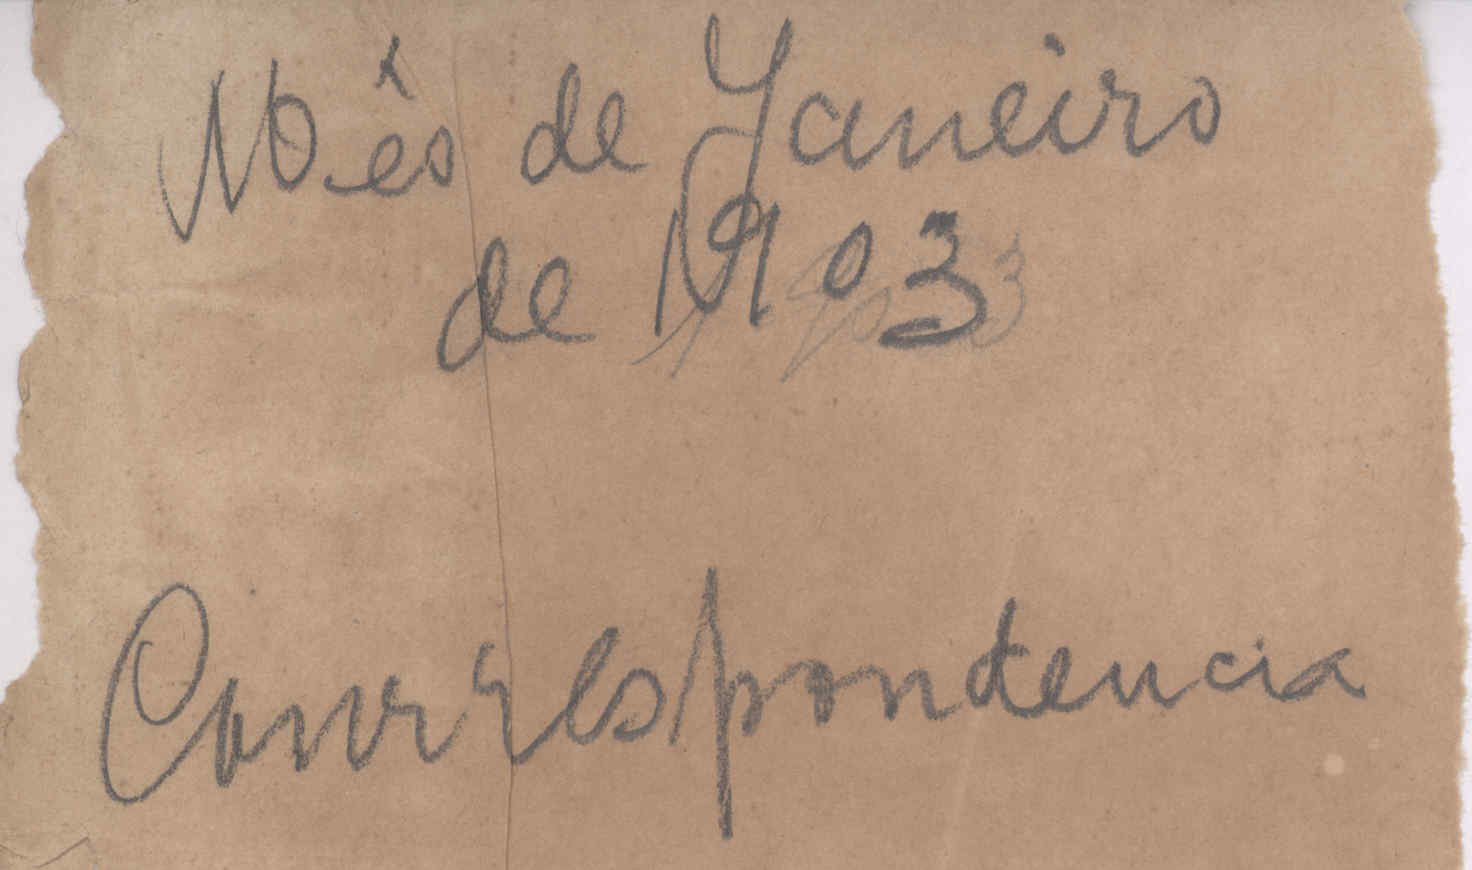 Mês de Janeiro
de 1903
Correspondencia